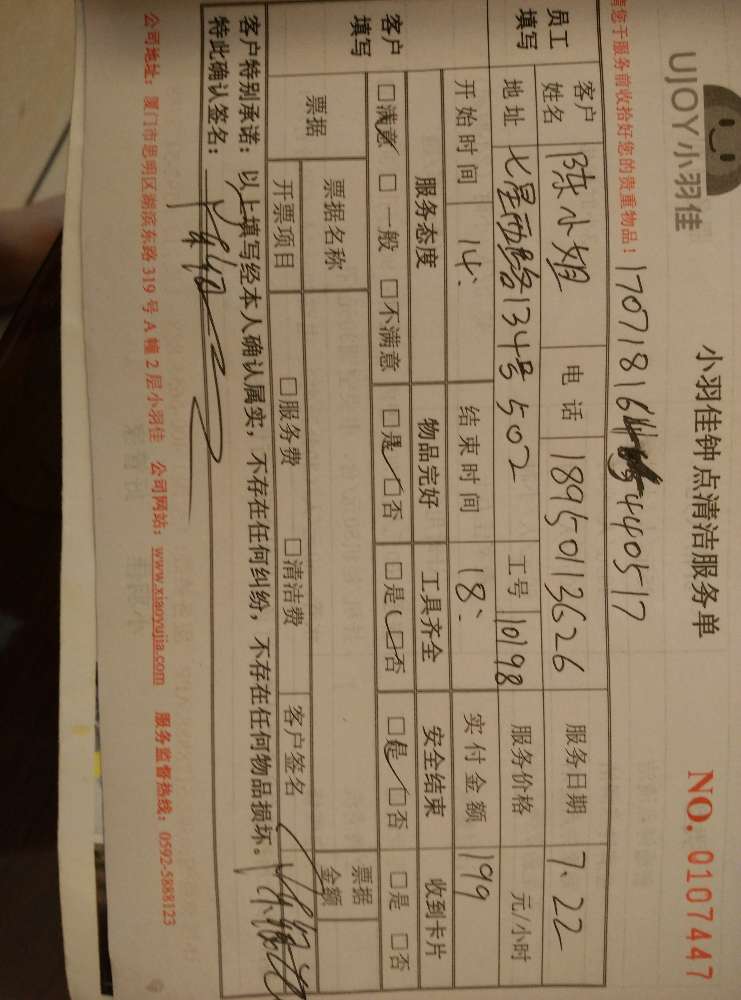 UJOY小羽佳
小羽佳钟点清洁服务单
NO. 0107447
请您于服务前收拾好您的贵重物品！ 1707181644 440517
员工填写
客户姓名 陈小姐 电话 18950113626 服务日期 7.22
地址 七星西路134号502 工号 10198 服务价格 元/小时
开始时间 14: 结束时间 18: 实付金额 199
客户填写
服务态度 物品完好 工具齐全 安全结束 收到卡片
□满意 □一般 □不满意 □是 □否 □是 □否 □是 □否 □是 □否
票据 票据名称 票据金额
开票项目 □服务费 □清洁费 客户签名
客户特别承诺：以上填写经本人确认属实，不存在任何纠纷，不存在任何物品损坏。
特此确认签名：
公司地址：厦门市思明区湖滨东路319号A幢2层小羽佳 公司网站：www.xiaoyujia.com 服务监督热线：0592-5888123